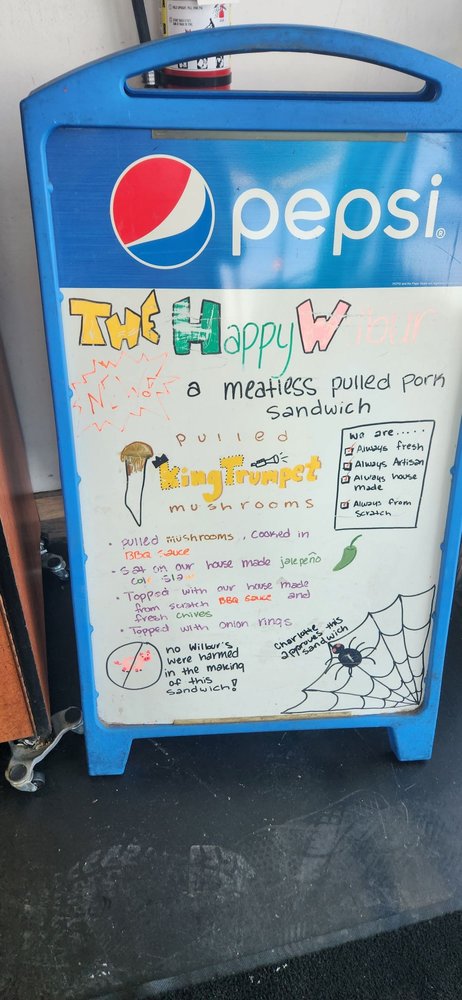 pepsi
THE Happy W
NEW!
a meatless pulled pork
sandwich
pulled
King Trumpet
mushrooms
We are.....
Always fresh
Always Artisan
Always house
made
Always from
Scratch
• pulled mushrooms, cooked in
BBQ sauce
• Sat on our house made jalepeño
• Topped with our house made
from scratch BBQ sauce and
fresh chives
• Topped with onion rings
no Wilbur's
were harmed
in the making
of this
sandwich!
Charlotte
approves this
sandwich